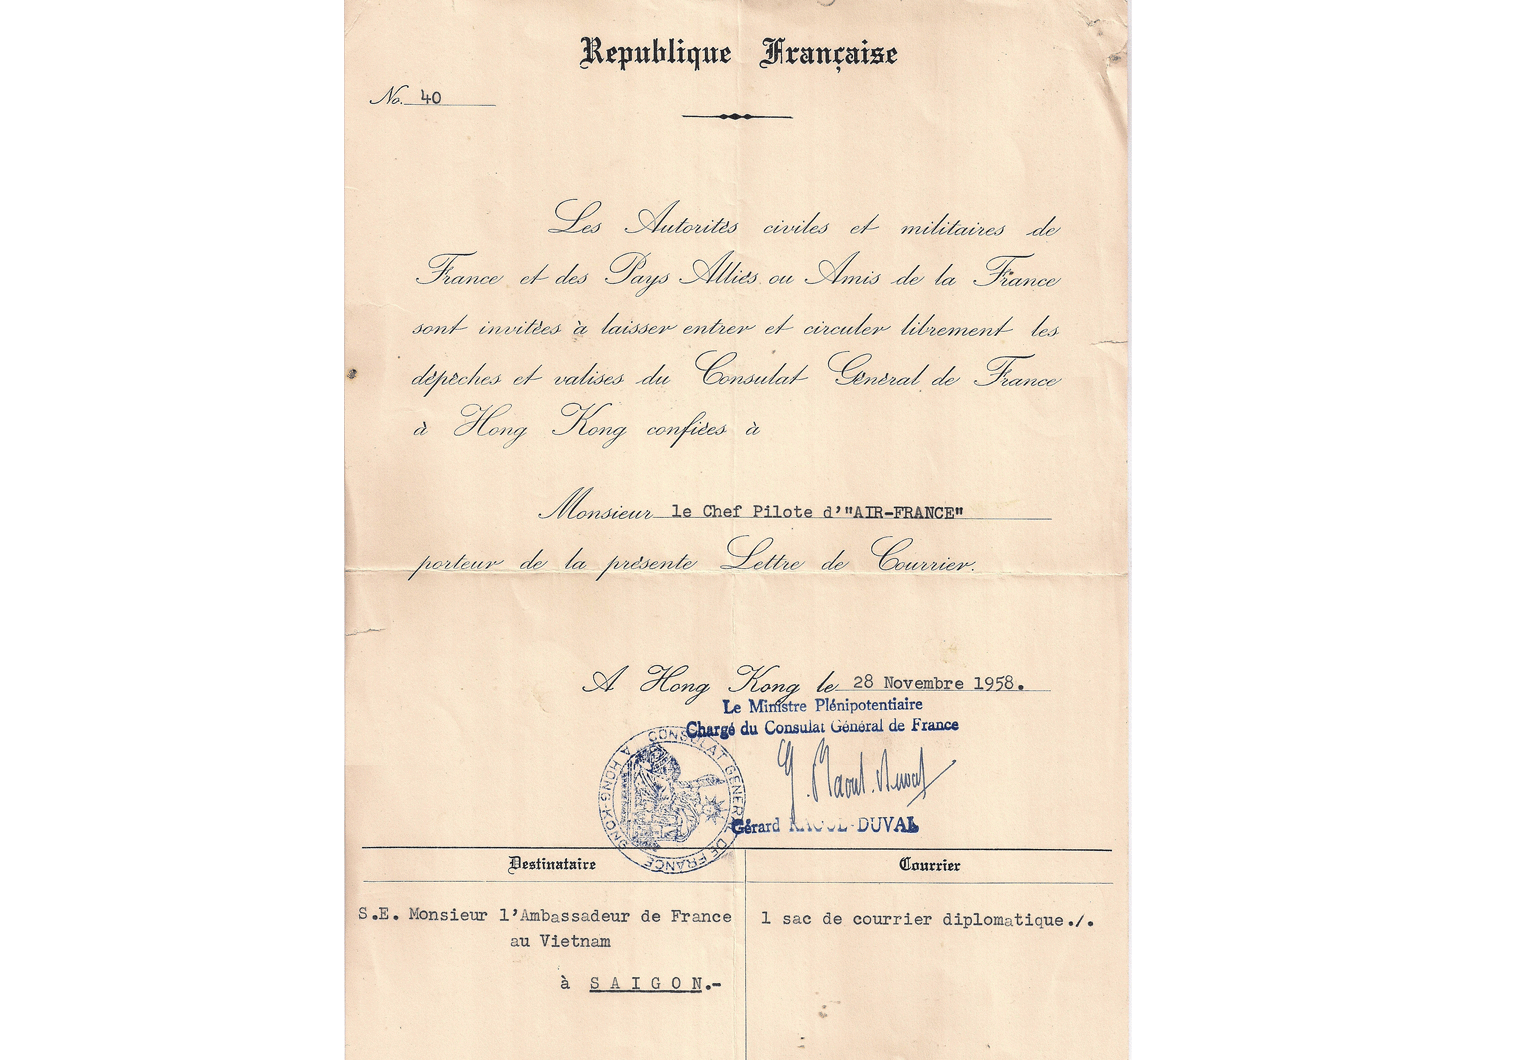 Republique Française
No. 40
Les Autorités civiles et militaires de
France et des Pays Alliés ou Amis de la France
sont invitées à laisser entrer et circuler librement les
dépêches et valises du Consulat Général de France
à Hong Kong confiées à
Monsieur le Chef Pilote d'"AIR-FRANCE"
porteur de la présente Lettre de Courrier.
A Hong Kong le 28 Novembre 1958.
Le Ministre Plénipotentiaire
Chargé du Consulat Général de France
CONSULAT GENERAL DE FRANCE A HONG-KONG
G. Raoul-Duval
Gérard RAOUL-DUVAL
Destinataire
Courrier
S.E. Monsieur l'Ambassadeur de France
au Vietnam
à SAIGON.-
1 sac de courrier diplomatique./.